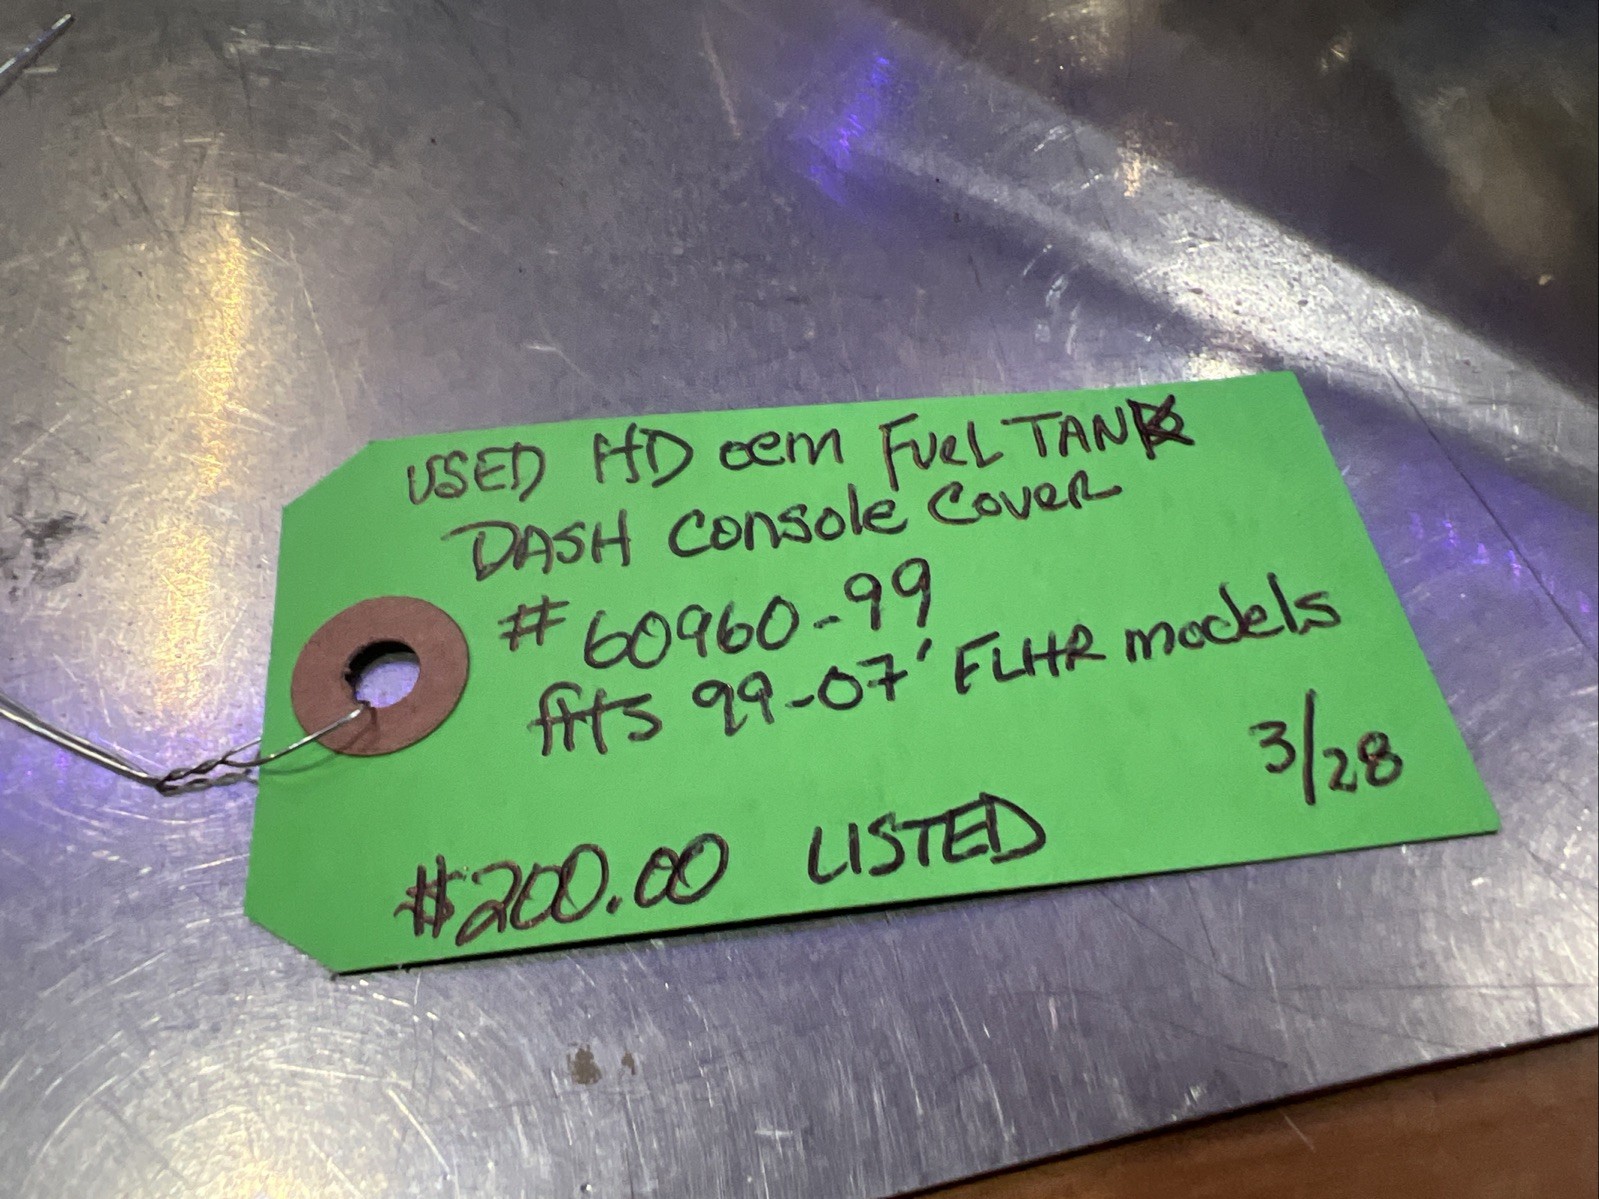 USED HD oem Fuel TANK
DASH Console Cover
# 60960-99
fits 99-07' FLHR models
3/28
$200.00 LISTED